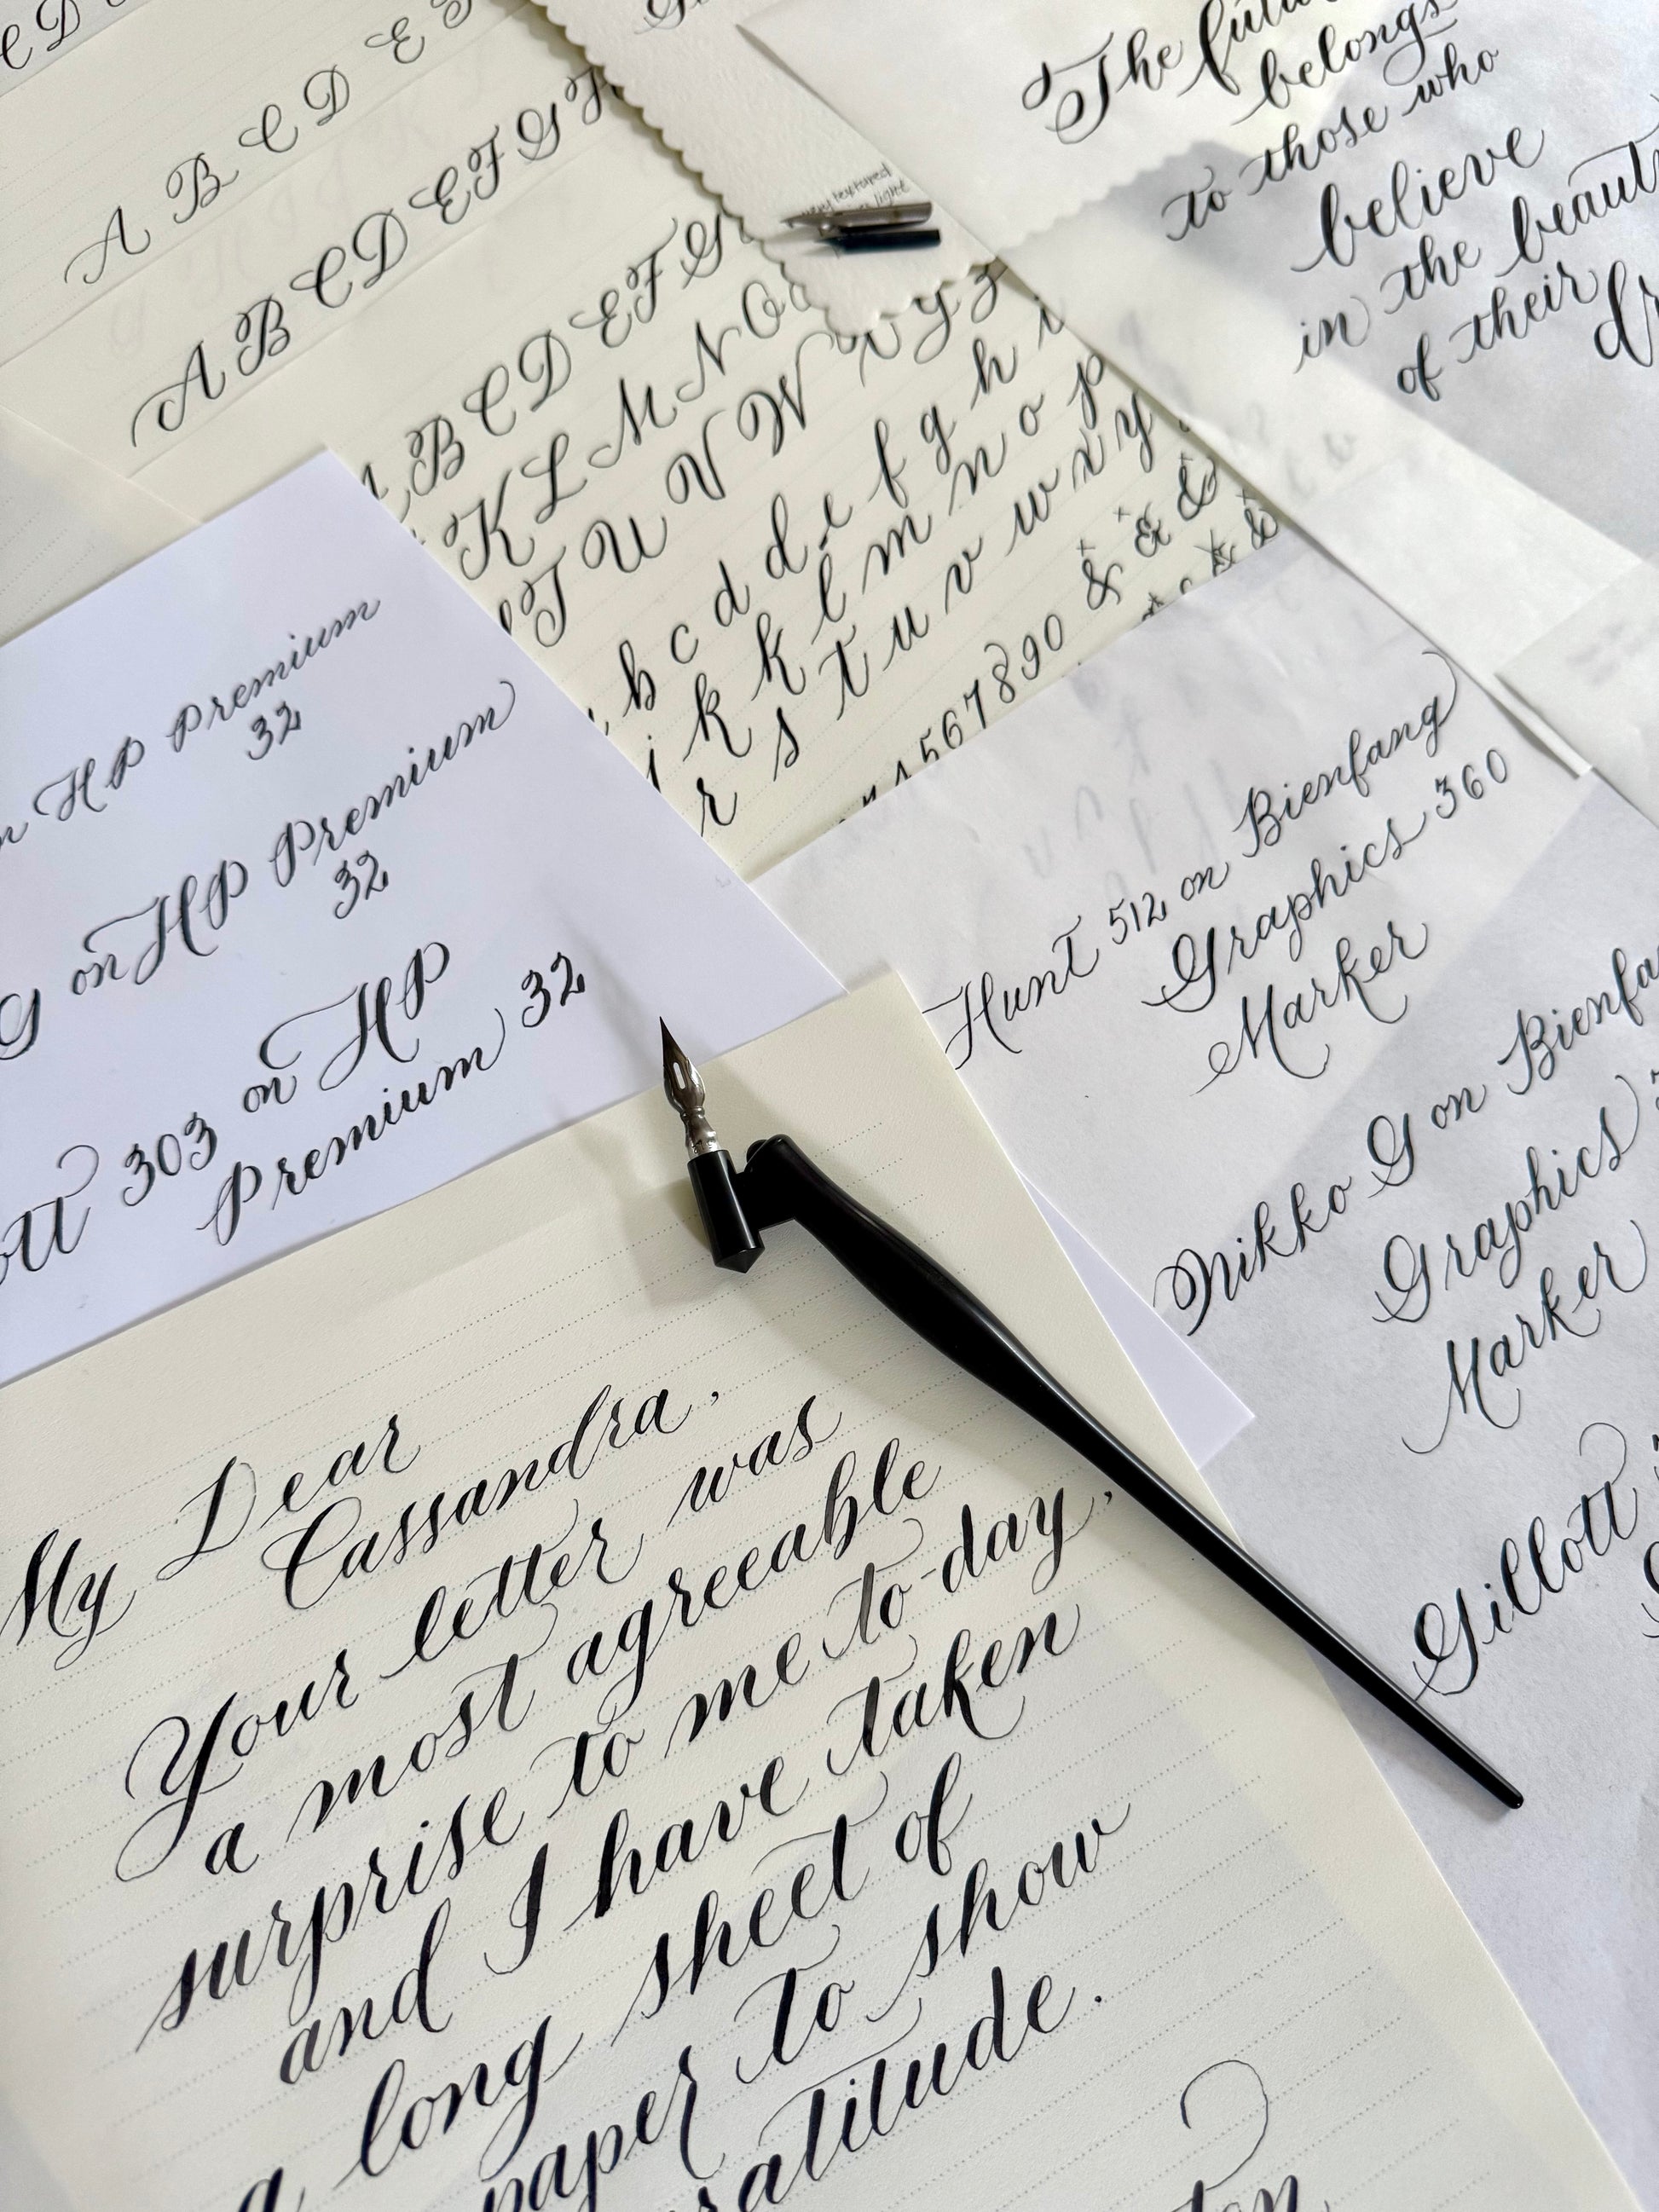 C D
A B C D E
A B C D E F G H
A B C D E F G
K L M N O
T U V W X Y Z
b c d d e f g h i
j k k l m n o p
r s t u v w x y
4567890 & & &
textured
light
The future
belongs
to those who
believe
in the beauty
of their
HP Premium
32
G on HP Premium
32
303 on HP
Premium 32
Hunt 512 on Bienfang
Graphics 360
Marker
Nikko G on Bienfang
Graphics
Marker
Gillott
My Dear
Cassandra,
Your letter was
a most agreeable
surprise to me to-day,
and I have taken
a long sheet of
paper to show
gratitude.